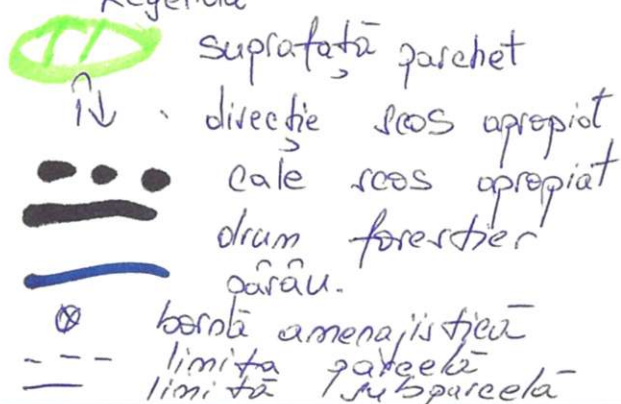 Legendă
suprafață parchet
direcție scos apropiat
cale scos apropiat
drum forestier
pârâu.
bornă amenajistică
limita parcelă
limită subparcelă